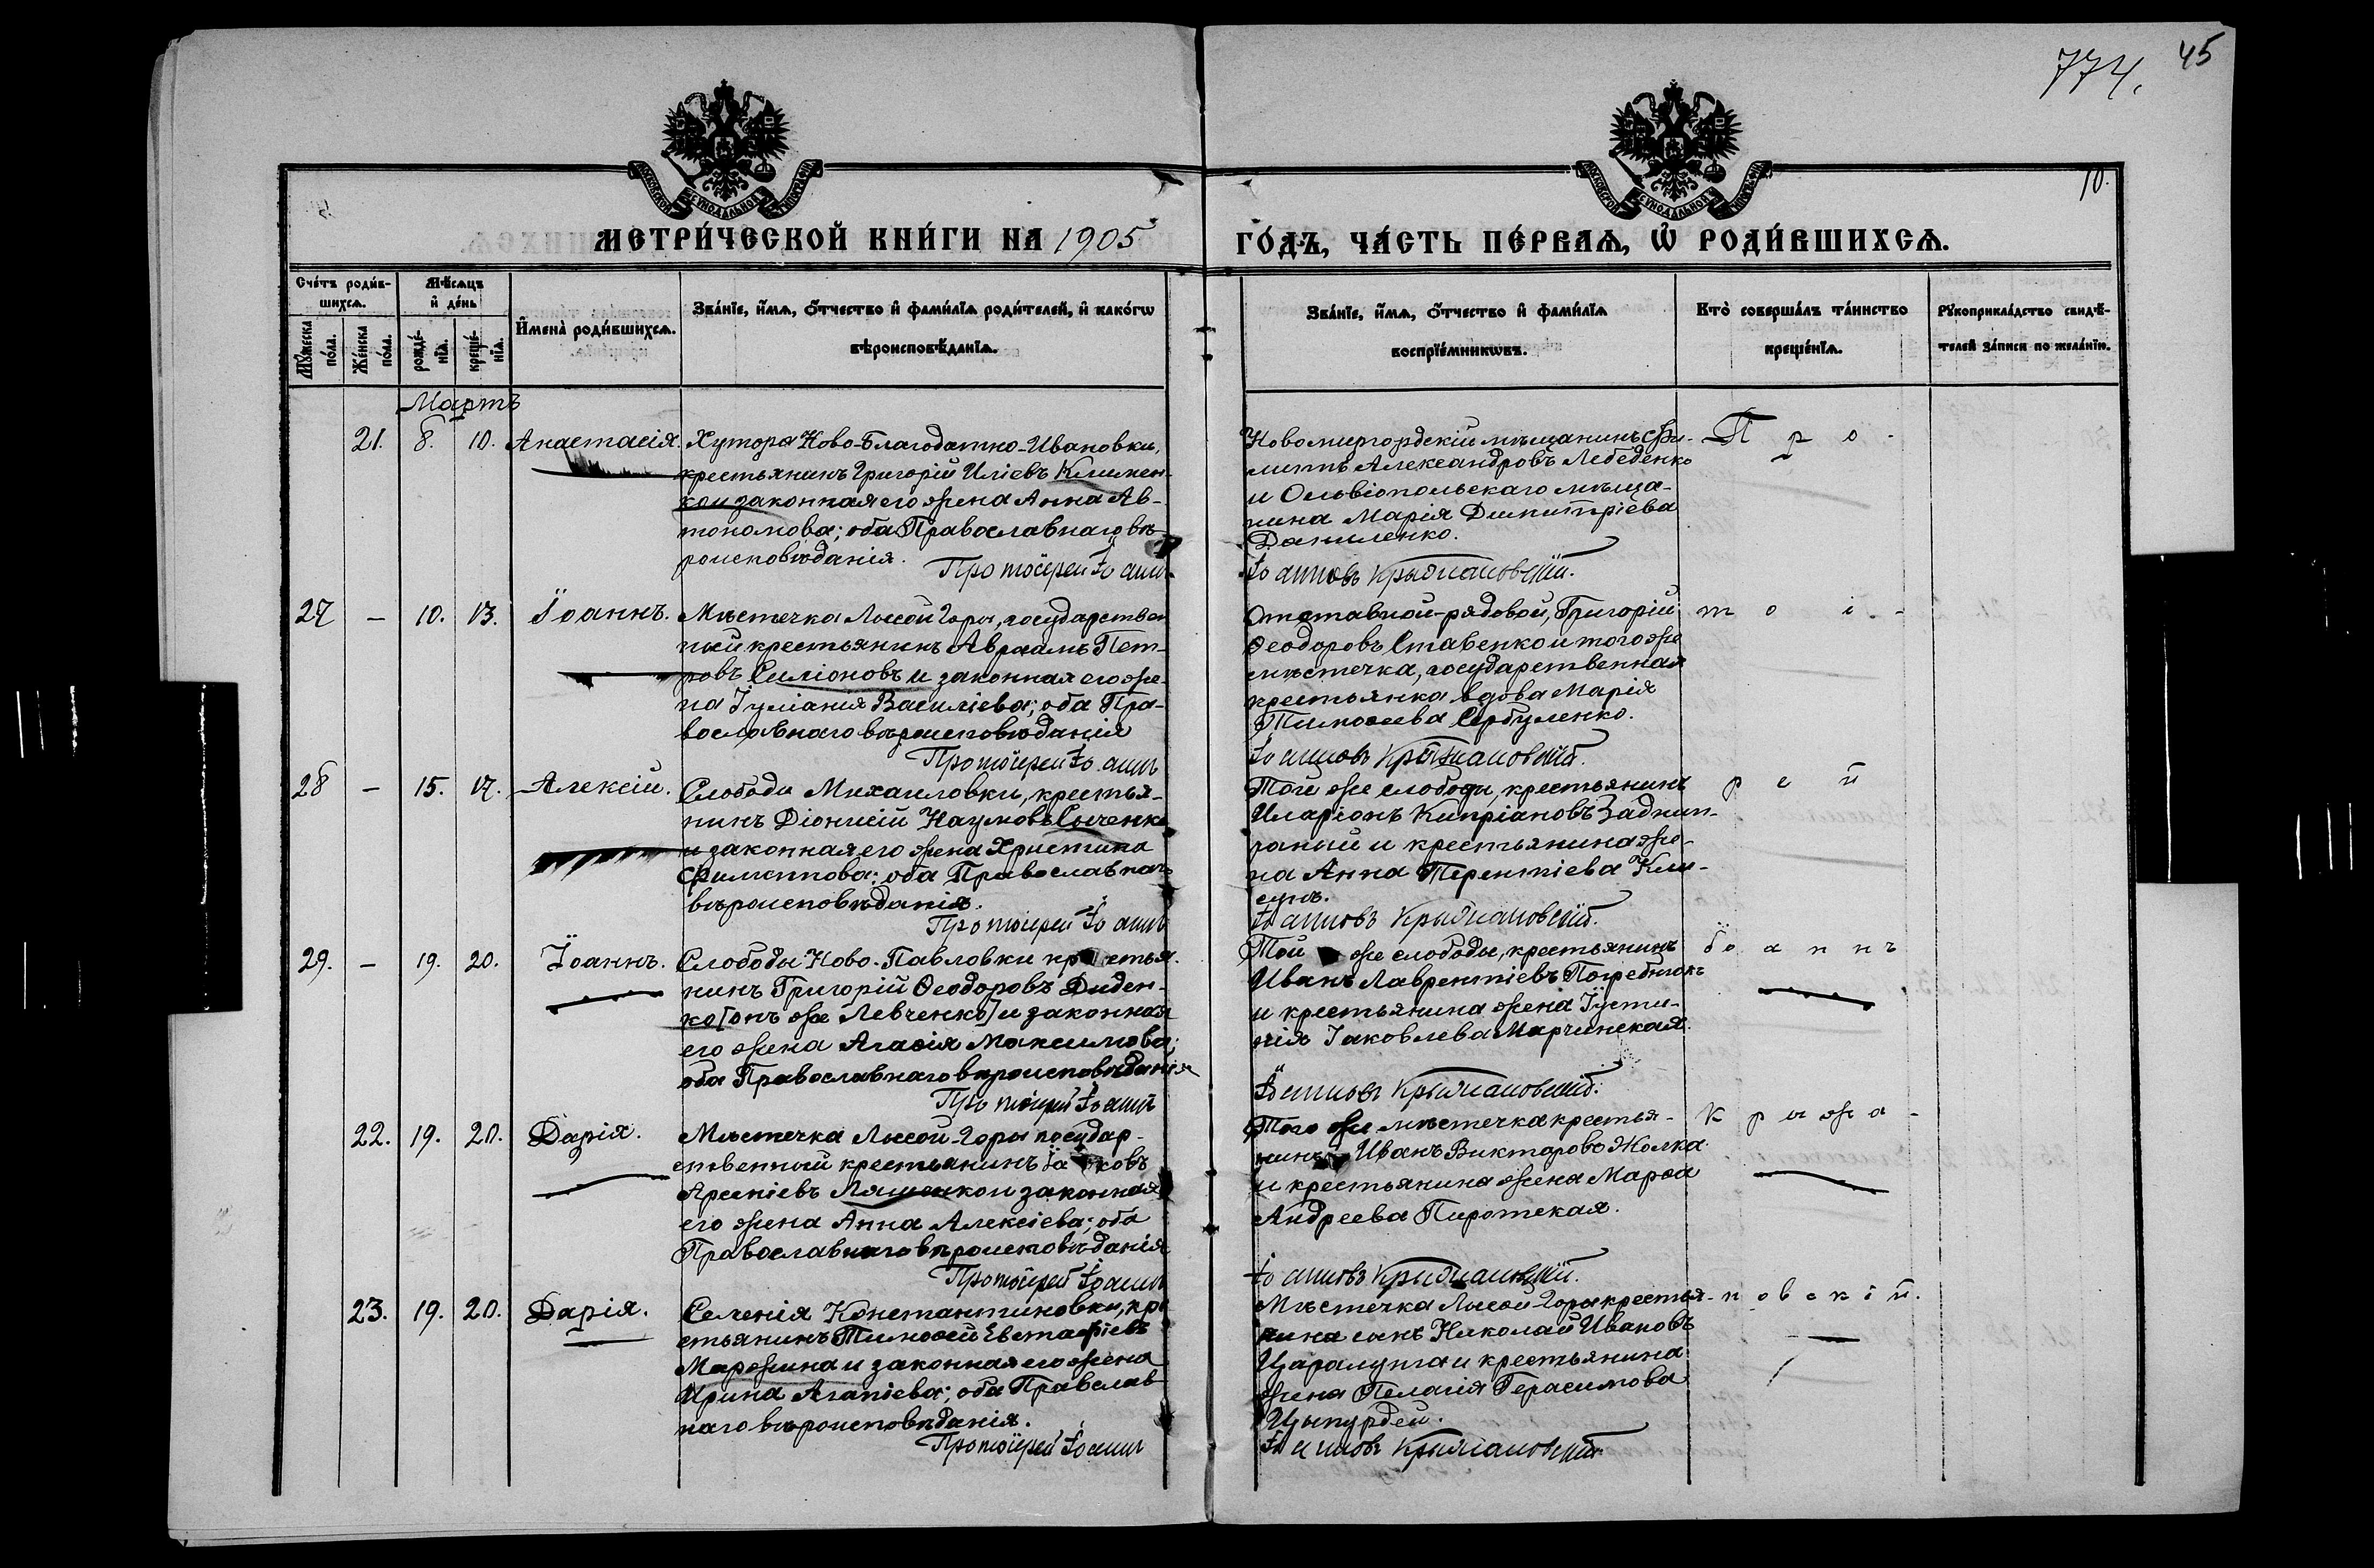 774. 45
10.
МОСКОВСКОЙ СѴНОДАЛЬНОЙ ТИПОГРАФІИ
МОСКОВСКОЙ СѴНОДАЛЬНОЙ ТИПОГРАФІИ
МЕТРИ́ЧЕСКОЙ КНИ́ГИ НА 1905
ГО́ДЪ, ЧА́СТЬ ПЕ́РВАѦ, Ѡ҆ РОДИ́ВШИХСѦ.
Сче́тъ роди́в-
шихсѧ.
Мꙋ́жеска по́ла.
Же́нска по́ла.
Мѣ́сѧцъ
и҆ де́нь
рожде́-
нїѧ.
креще́-
нїѧ.
И҆мена̀ роди́вшихсѧ.
Зва́нїе, и҆́мѧ, ѻ҆́тчество и҆ фами́лїѧ роди́телей, и҆ како́гѡ
вѣроисповѣ́данїѧ.
Зва́нїе, и҆́мѧ, ѻ҆́тчество и҆ фами́лїѧ
воспрїе́мникѡвъ.
Кто̀ соверша́лъ та́инство
креще́нїѧ.
Рꙋкоприкла́дство свидѣ́-
телей за́писи по жела́нїю.
Мартъ
21. 8. 10. Анастасія. Хутора Ново-Благодатно-Ивановки,
крестьянинъ Григорій Иліевъ Клименко
и законная его жена Анна Ав-
тономова; оба Православнаго вѣ-
роисповѣданія.
Протоіерей Іоанн
Новомиргородскій мѣщанинъ Фи-
липпъ Александровъ Лебеденко
и Ольвіопольскаго мѣща-
нина Марія Димитріева
Даниленко.
Іоанновъ Крыжановскій.
Про-
27 — 10. 13. Іоаннъ. Мѣстечка Лысой Горы, государствен
ный крестьянинъ Авраамъ Пет-
ровъ Силіоновъ и законная его же-
на Іуліанія Василіева; оба Пра-
вославнаго вѣроисповѣданія
Протоіерей Іоанн
Отставной-рядовой, Григорій
Ѳеодоровъ Ставенко и того же
мѣстечка, государственная
крестьянка вдова Марія
Тимоѳеева Сербуленко.
Іоанновъ Крыжановскій.
тоі-
28 — 15. 17. Алексій. Слободы Михаиловки, крестья-
нинъ Діонисій Наумовъ Сыченко
и законная его жена Христина
Филиппова; оба Православнаго
вѣроисповѣданія.
Протоіерей Іоанн
Той же слободы, крестьянинъ
Иларіонъ Кипріановъ Заднип-
ряный и крестьянина же-
на Анна Терентіева Кли-
Іоанновъ Крыжановскій.
рей
29. — 19. 20. Іоаннъ. Слободы Ново-Павловки крестья-
нинъ Григорій Ѳеодоровъ Диден-
ко [онъ же Левченко] и законная
его жена Агаѳія Максимова;
оба Православнаго вѣроисповѣданія
Протоіерей Іоанн
Той же слободы, крестьянинъ
Иванъ Лаврентіевъ Погребнюкъ
и крестьянина жена Іусти-
нія Іаковлева Марчинская.
Іоанновъ Крыжановскій.
Іоаннъ
22. 19. 20. Дарія. Мѣстечка Лысой-Горы государ-
ственный крестьянинъ Іаковъ
Арсеніевъ Ляшенко и законная
его жена Анна Алексіева; оба
Православнаго вѣроисповѣданія
Протоіерей Іоанн
Того же мѣстечка крестья-
нинъ Иванъ Викторовъ Жолка
и крестьянина жена Марѳа
Андреева Пиротская.
Іоанновъ Крыжановскій.
Крыжа-
23. 19. 20. Дарія. Селенія Константиновки, кре
стьянинъ Тимоѳей Евстафіевъ
Марожина и законная его жена
Ирина Агапіева; оба Православ-
наго вѣроисповѣданія.
Протоіерей Іоанн
Мѣстечка Лысой-Горы крестья-
нина сынъ Николай Ивановъ
Царалунга и крестьянина
жена Пелагія Герасимова
Цыпурдей.
Іоанновъ Крыжановскій
новскій.